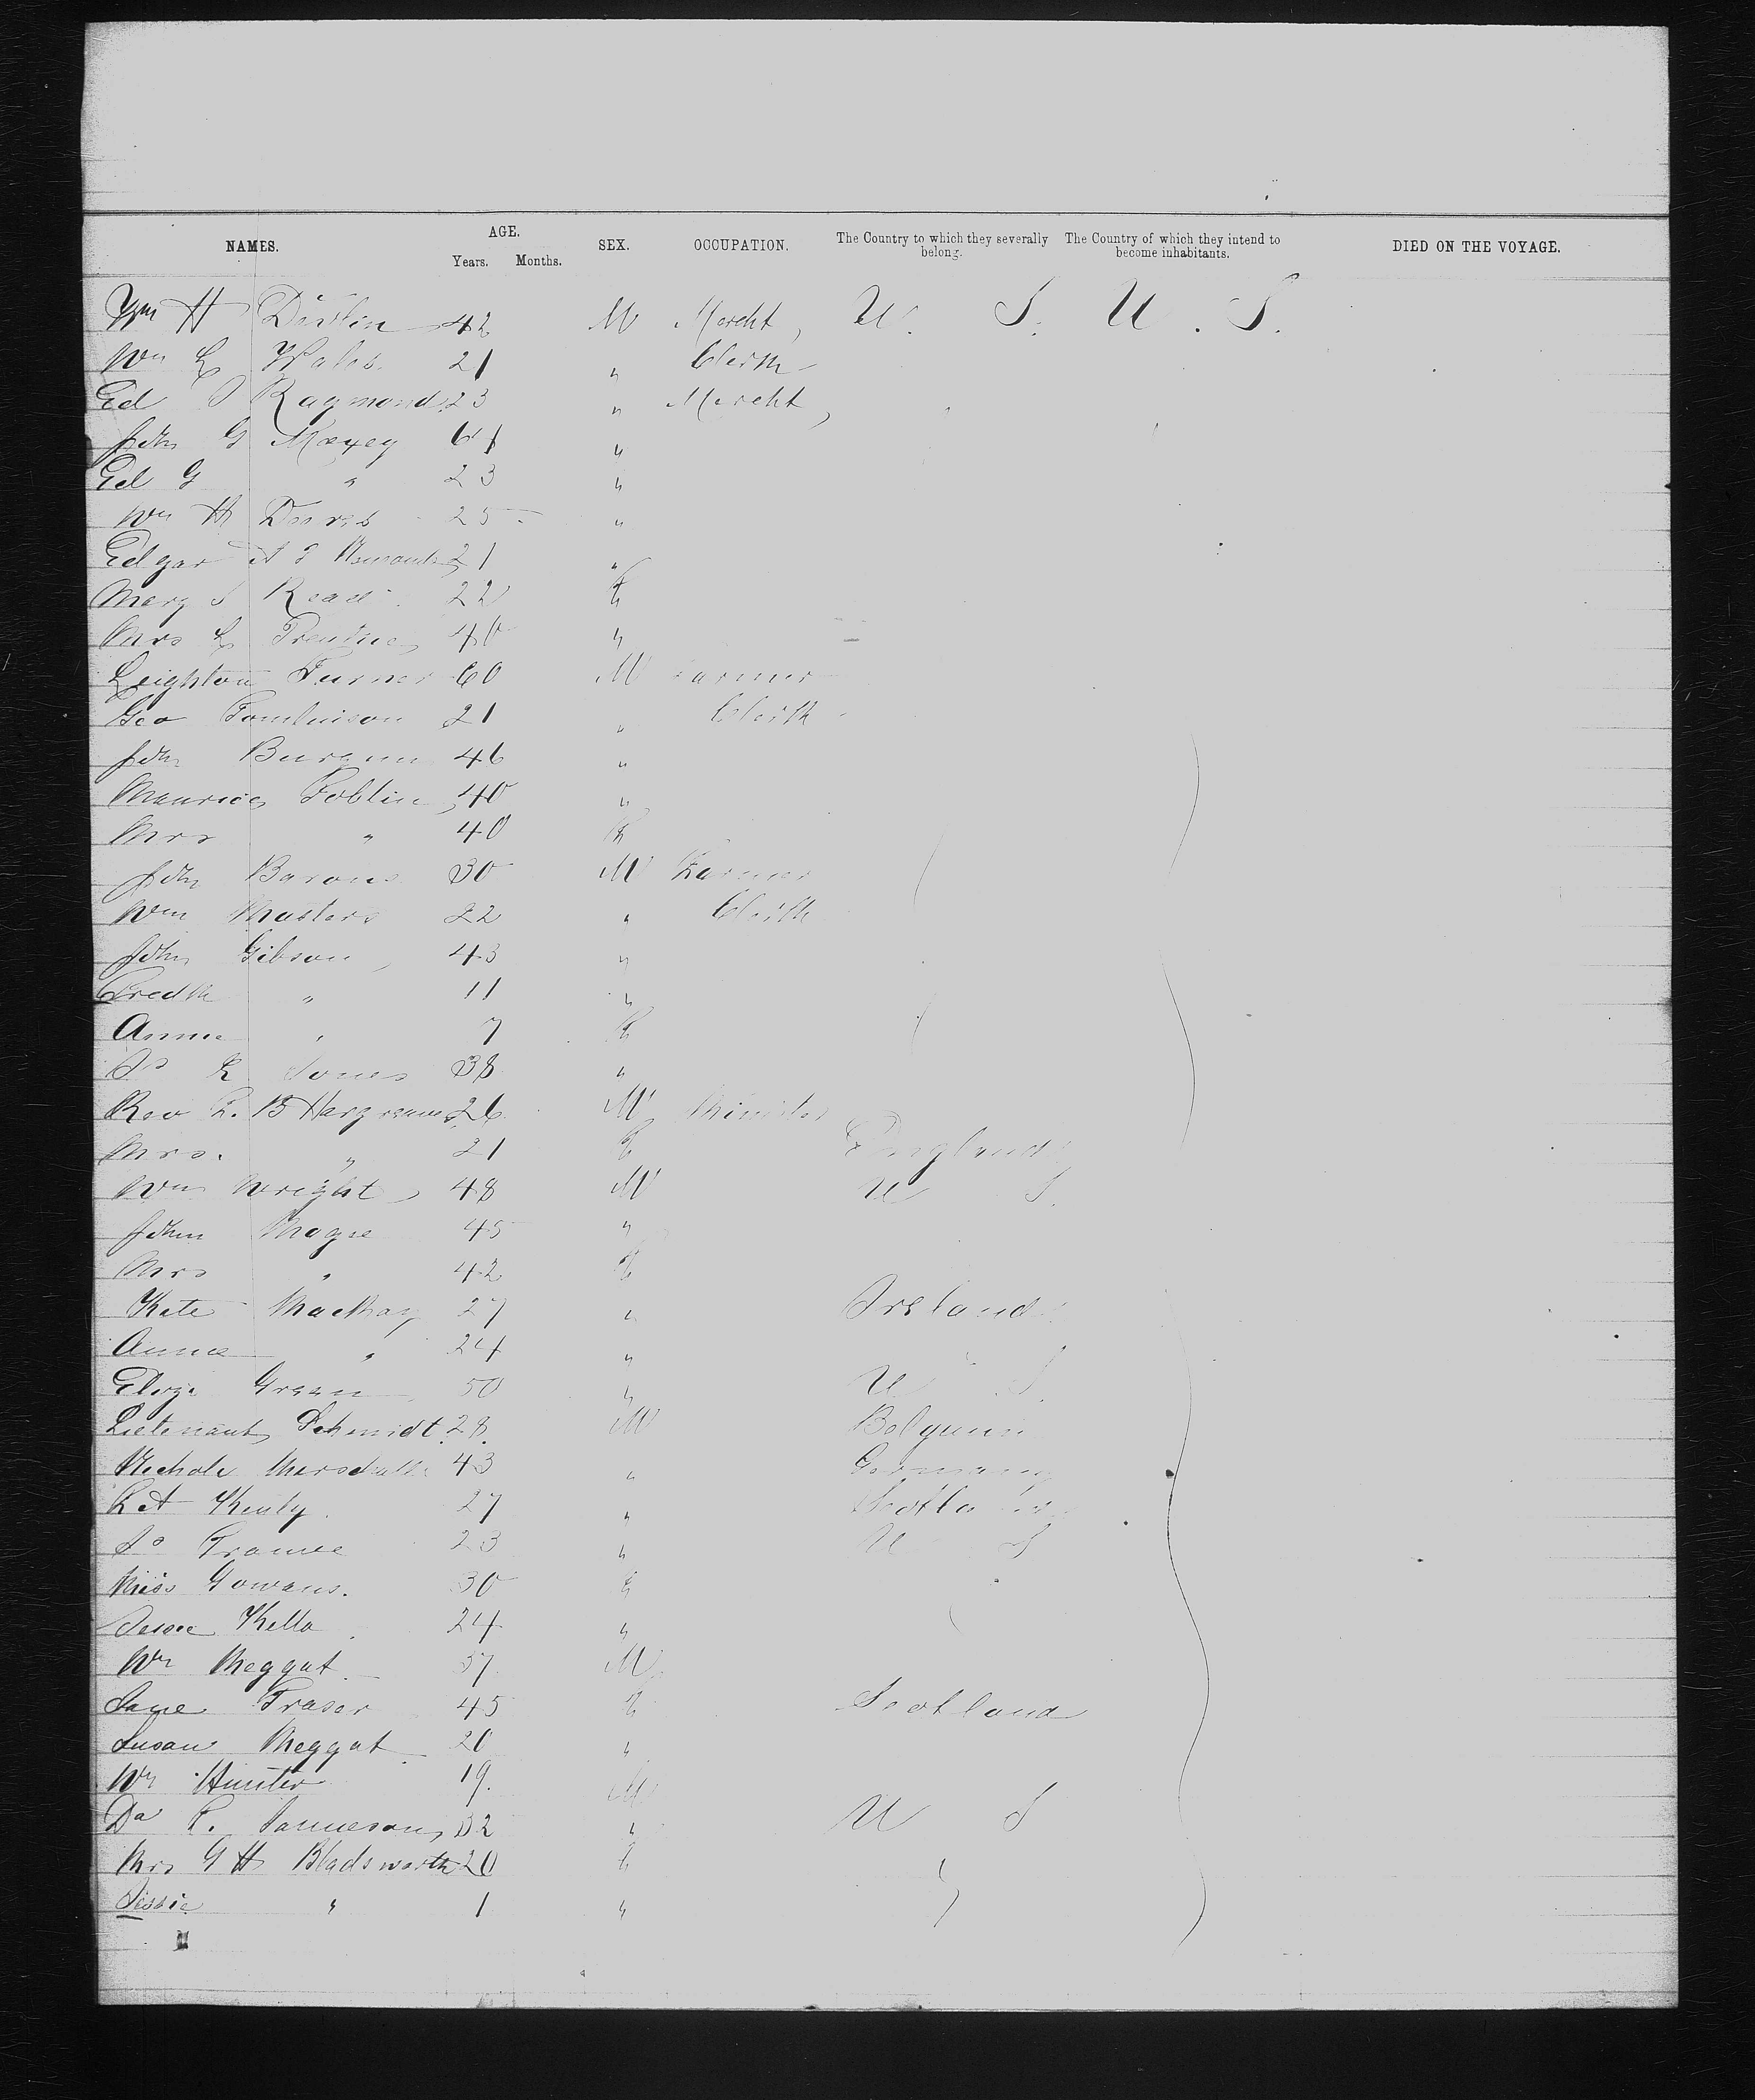 NAMES. AGE. Years. Months. SEX. OCCUPATION. The Country to which they severally belong. The Country of which they intend to become inhabitants. DIED ON THE VOYAGE.
Wm H Divlin 42 M Mercht, U. S. U. S.
Wm L Wales 21 " Clerk
Ed J Raymond 23 " Mercht,
John G Maxey 61 "
Ed G " 23 "
Wm H 25 "
Edgar A 21 "
Mary S Read 22 F
Mrs L 40 "
Leighton Turner 60 M Farmer
Geo Tomlinson 21 " Clerk
John 46 "
Maurice Toblin 40 "
Mrs " 40 F
John Barons 30 M Farmer
Wm Masters 22 " Clerk
John Gibson 43 "
Fredk " 11 "
Annie " 7 F
Jones 38 "
Rev L. B Hargreaves 26 M Minister
Mrs. " 21 F England
Wm Wright 48 M U S.
John Magee 45 "
Mrs " 42 F
Kate Mackay 27 " Ireland
Annie " 24 "
Eliza Green 50 " U S.
Lietenant Schmidt 28 M Belgium
43 " Germany
27 "
23 " U S
Miss Gowans. 30 F
Jessie Kella 24 "
Wm Meggat 37 M
Jane Fraser 45 F Scotland
Susan Meggat 20 "
Wm Hunter 19 M
Jamieson 32 " U S
Mrs G H Bladsworth 20 F
Jessie " 1 "